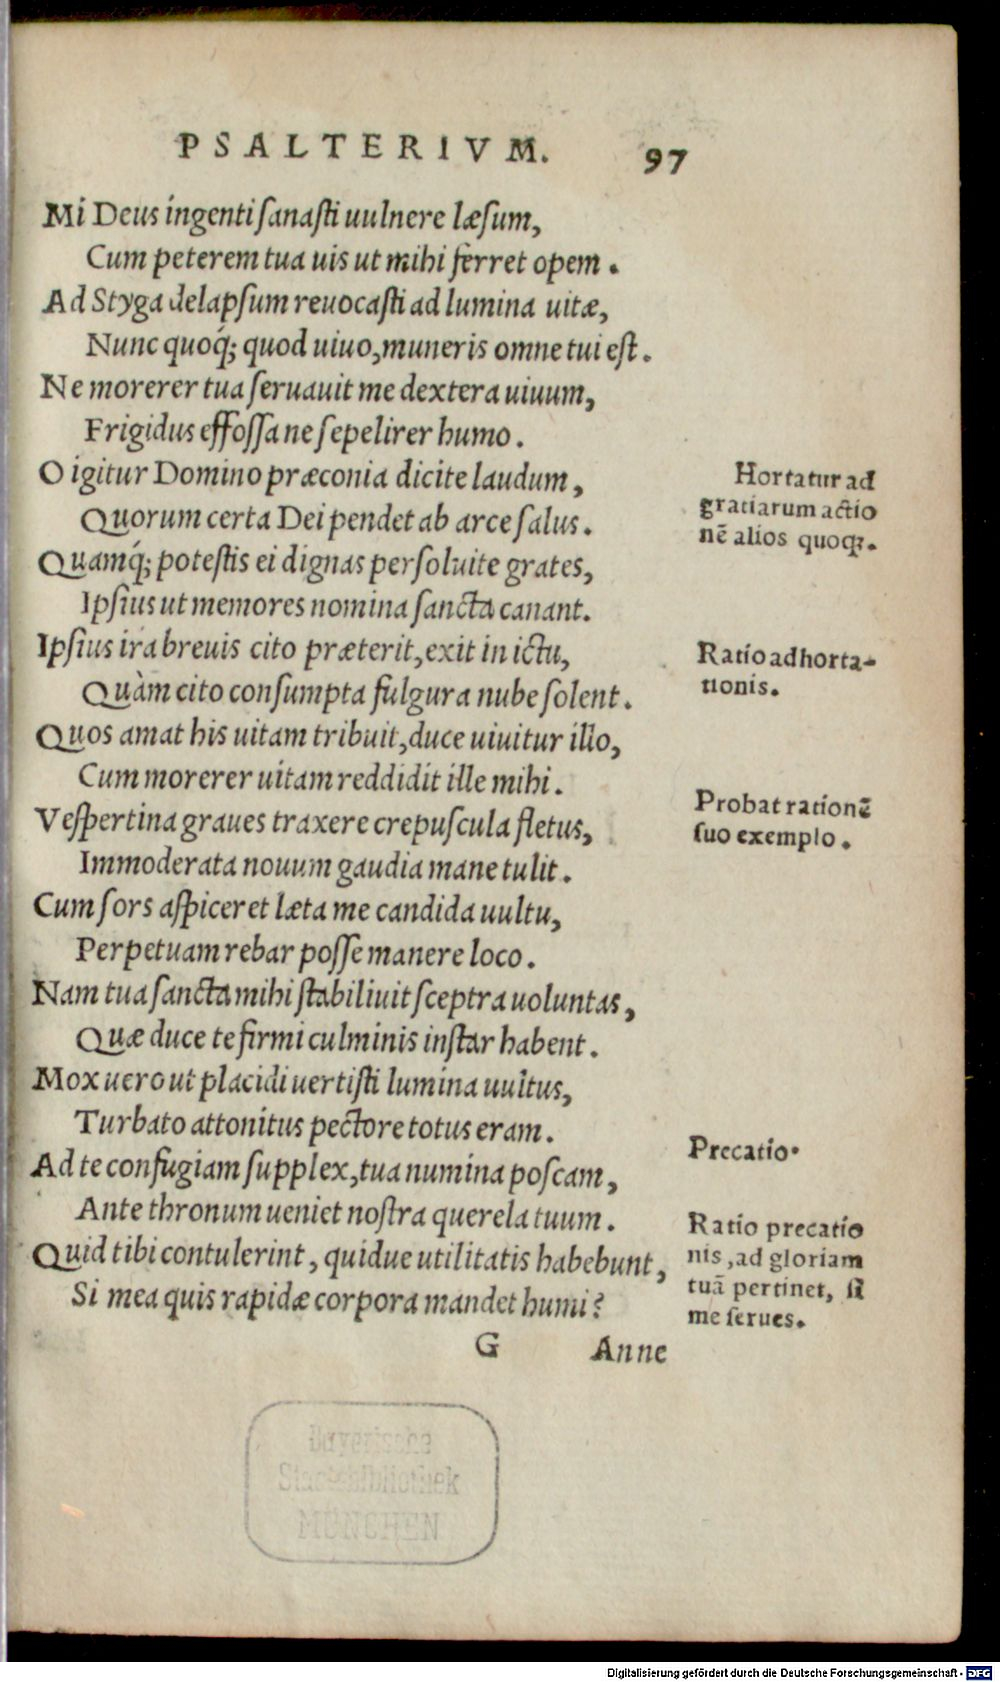 PSALTERIVM. 97
Mi Deus ingenti sanasti uulnere læsum,
Cum peterem tua uis ut mihi ferret opem.
Ad Styga delapsum reuocasti ad lumina uitæ,
Nunc quoq́; quod uiuo, muneris omne tui est.
Ne morerer tua seruauit me dextera uiuum,
Frigidus effossa ne sepelirer humo.
O igitur Domino præconia dicite laudum,
Quorum certa Dei pendet ab arce salus.
Quamq́; potestis ei dignas persoluite grates,
Ipsius ut memores nomina sancta canant.
Ipsius ira breuis cito præterit, exit in ictu,
Quàm cito consumpta fulgura nube solent.
Quos amat his uitam tribuit, duce uiuitur illo,
Cum morerer uitam reddidit ille mihi.
Vespertina graues traxere crepuscula fletus,
Immoderata nouum gaudia mane tulit.
Cum sors aspiceret læta me candida uultu,
Perpetuam rebar posse manere loco.
Nam tua sancta mihi stabiliuit sceptra uoluntas,
Quæ duce te firmi culminis instar habent.
Mox uero ut placidi uertisti lumina uultus,
Turbato attonitus pectore totus eram.
Ad te confugiam supplex, tua numina poscam,
Ante thronum ueniet nostra querela tuum.
Quid tibi contulerint, quidue utilitatis habebunt,
Si mea quis rapidæ corpora mandet humi?
G Anne
Hortatur ad
gratiarum actio
nē alios quoqꝫ.
Ratio adhorta-
tionis.
Probat rationē
suo exemplo.
Precatio.
Ratio precatio
nis, ad gloriam
tuā pertinet, si
me serues.
Bayerische
Staatsbibliothek
MÜNCHEN
Digitalisierung gefördert durch die Deutsche Forschungsgemeinschaft - DFG